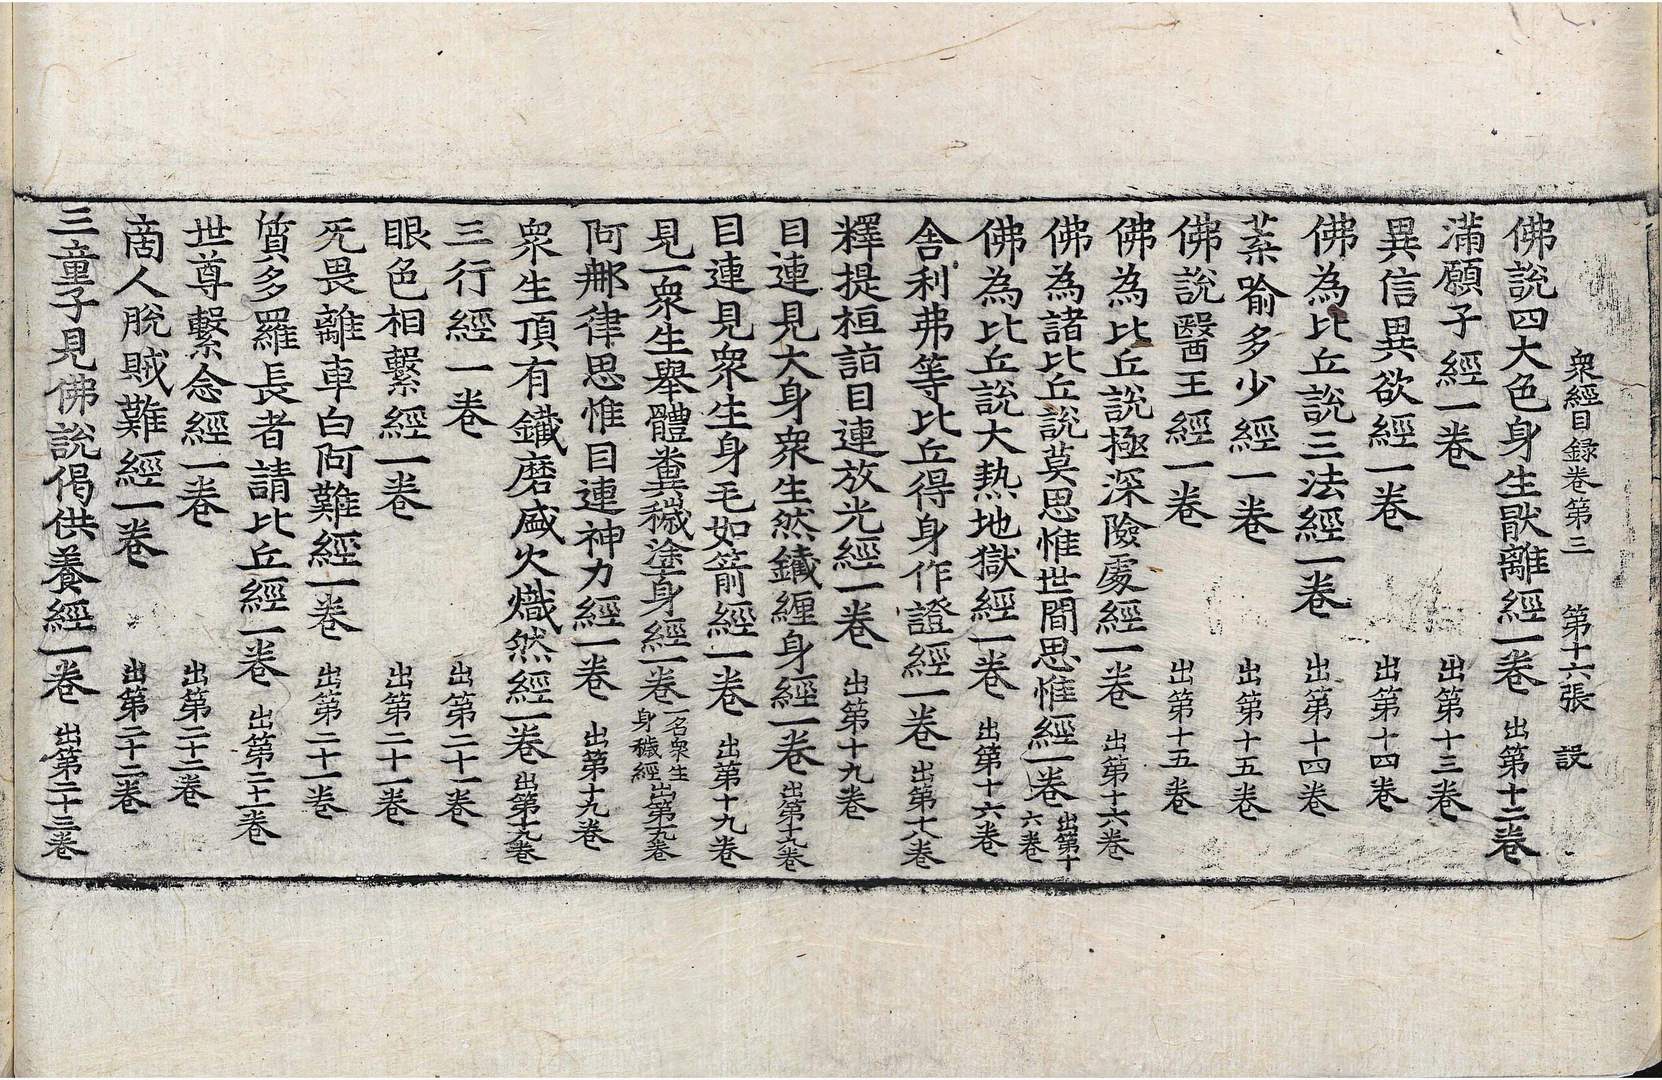 衆經目録卷第三　第十六張　設
佛說四大色身生猒離經一卷　出第十二卷
滿願子經一卷　出第十三卷
異信異欲經一卷　出第十四卷
佛為比丘說三法經一卷　出第十四卷
葉喻多少經一卷　出第十五卷
佛說醫王經一卷　出第十五卷
佛為比丘說極深險處經一卷　出第十六卷
佛為諸比丘說莫思惟世間思惟經一卷　出第十六卷
佛為比丘說大熱地獄經一卷　出第十六卷
舍利弗等比丘得身作證經一卷　出第十八卷
釋提桓詣目連放光經一卷　出第十九卷
目連見大身衆生然鐵纒身經一卷　出第十九卷
目連見衆生身毛如箭經一卷　出第十九卷
見一衆生舉體糞穢塗身經一卷　一名衆生身穢經　出第十九卷
阿那律思惟目連神力經一卷　出第十九卷
衆生頂有鐵磨盛火熾然經一卷　出第十九卷
三行經一卷　出第二十一卷
眼色相繫經一卷　出第二十一卷
无畏離車白阿難經一卷　出第二十一卷
質多羅長者請比丘經一卷　出第二十一卷
世尊繫念經一卷　出第二十二卷
商人脫賊難經一卷　出第二十二卷
三童子見佛說偈供養經一卷　出第二十三卷